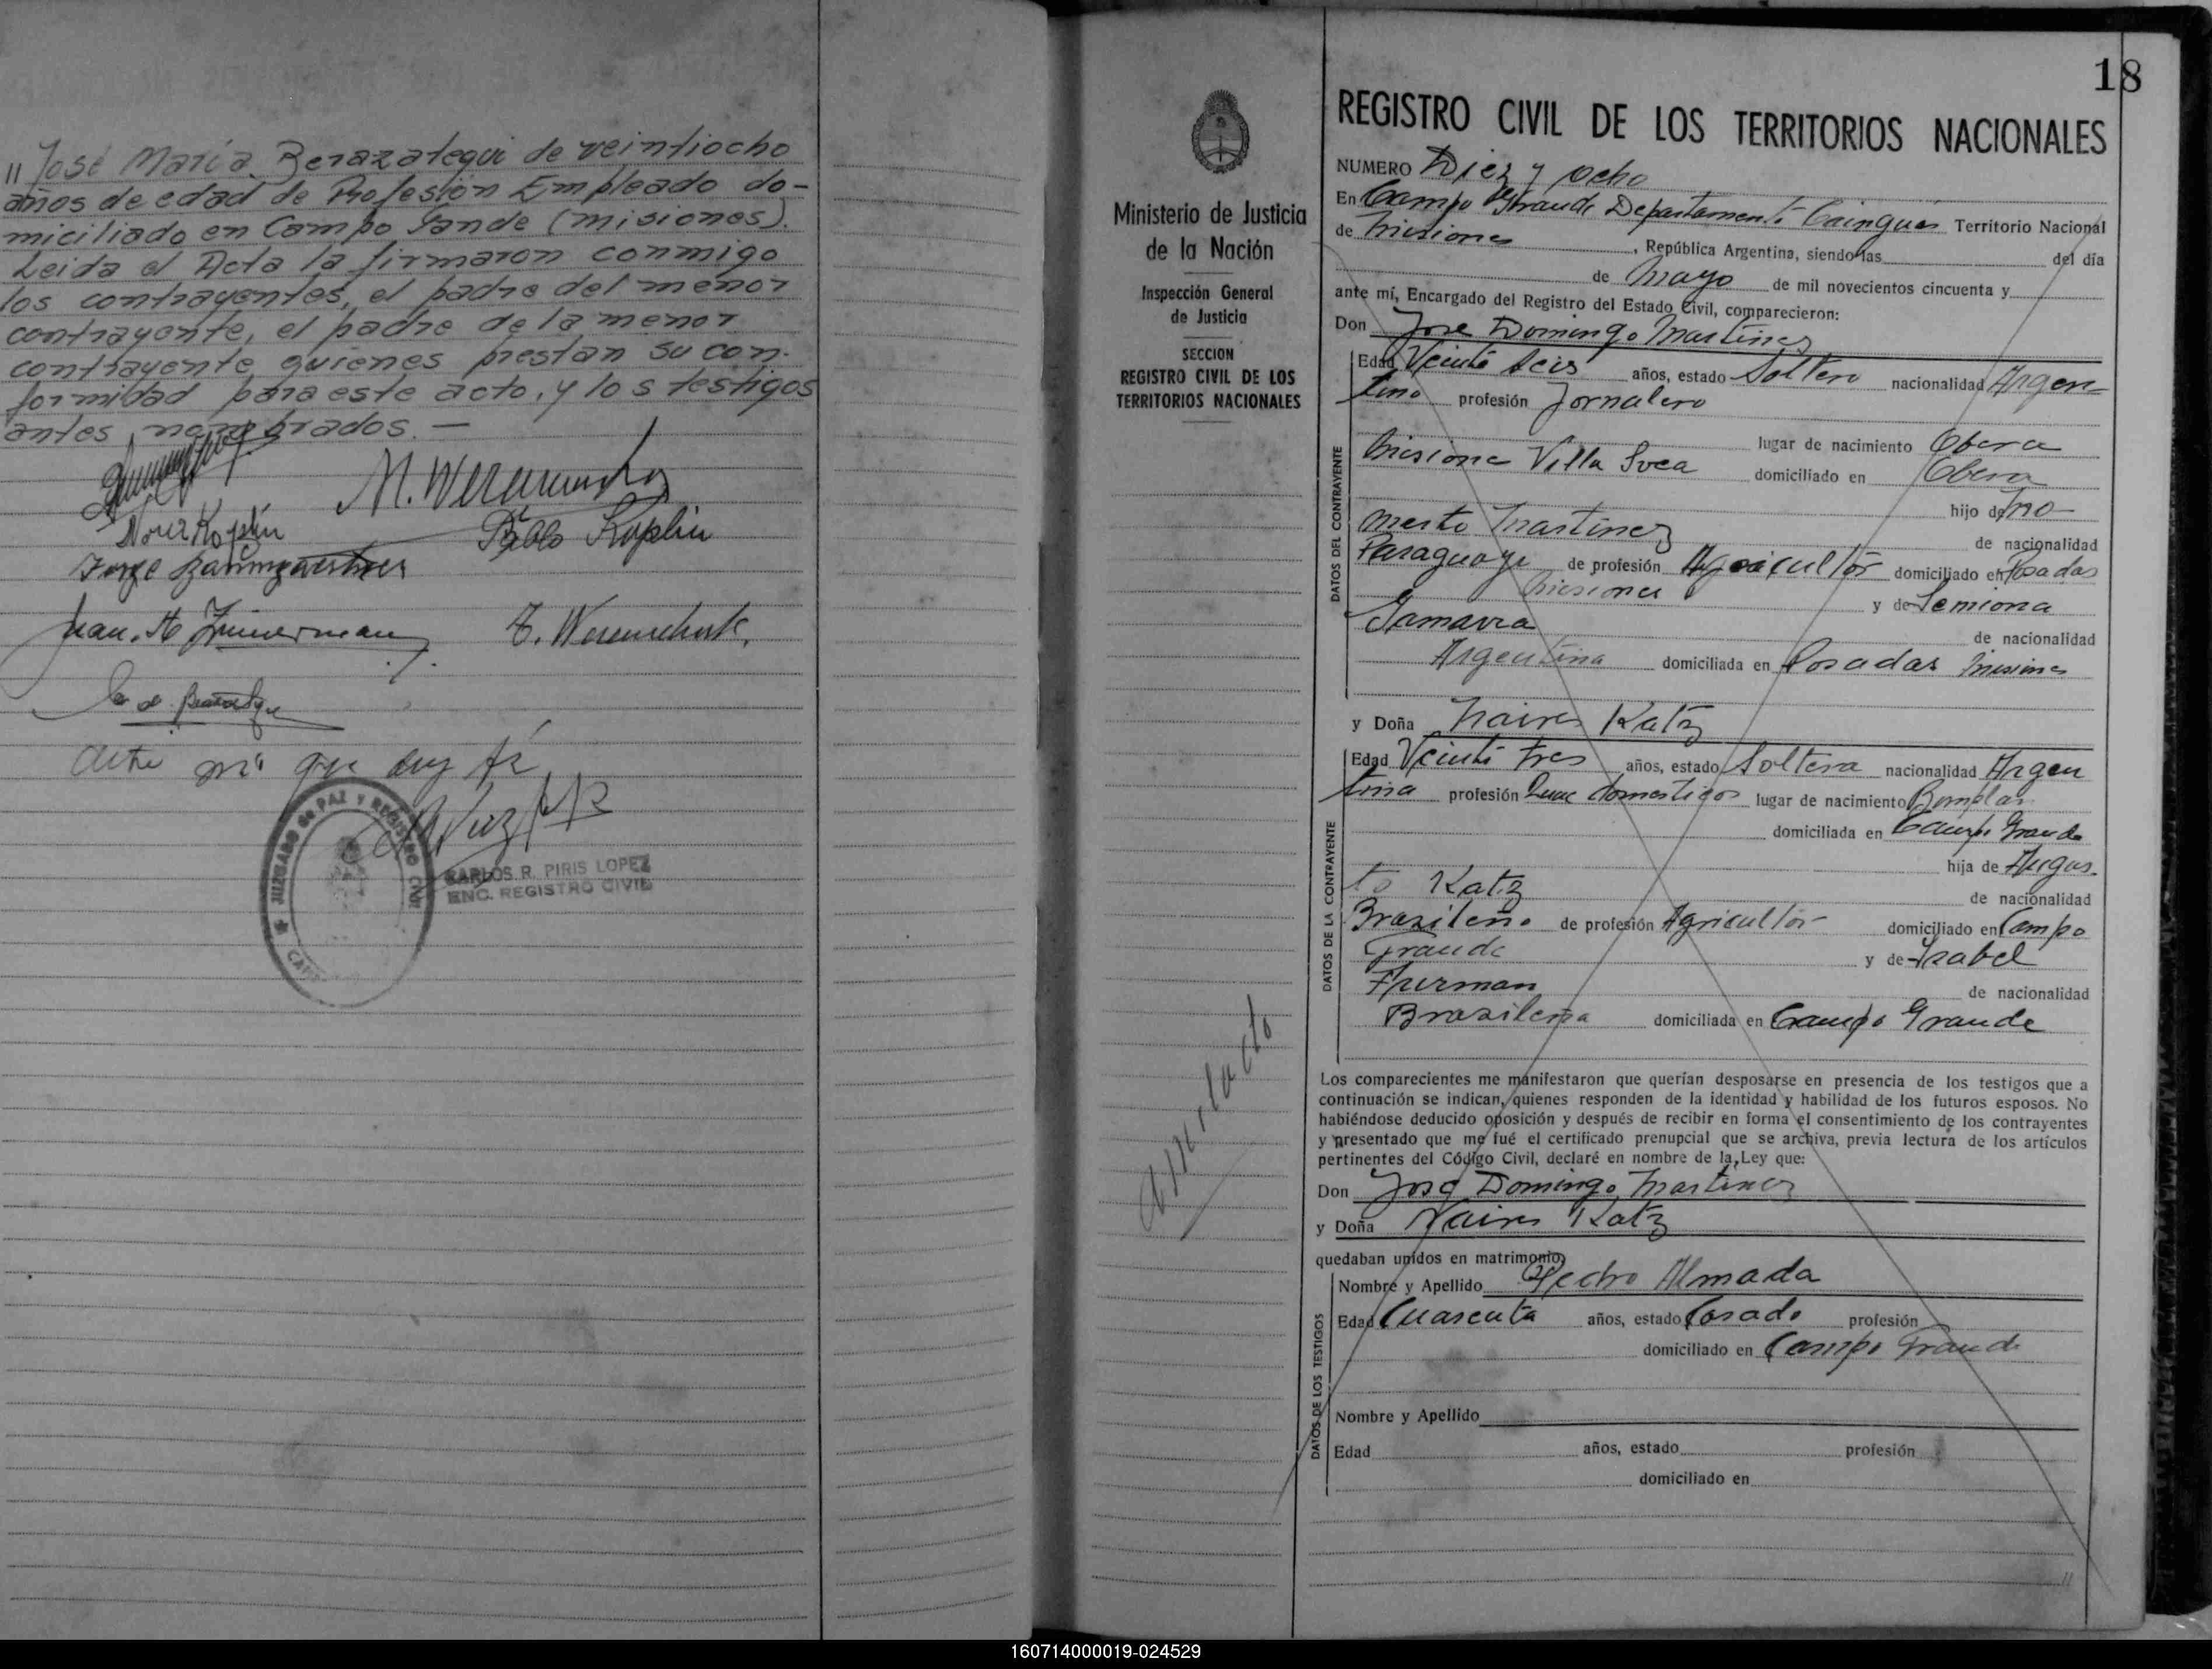 " José María Berazategui de veintiocho
años de edad de Profesión Empleado do-
miciliado en Campo Gande (misiones).
Leida el Acta la firmaron conmigo
los contrayentes, el padre del menor
contrayente, el padre de la menor
contrayente quienes prestan su con-
formidad para este acto, y los testigos
antes nombrados. —
Nora Koplin
Pablo Koplin
Jorge Baumgaertner
Juan. A Zimmerman
ante mi que doy fé
JUZGADO de PAZ Y REGISTRO CIVIL
CARLOS R. PIRIS LOPEZ
ENC. REGISTRO CIVIL
18
Ministerio de Justicia
de la Nación
Inspección General
de Justicia
SECCION
REGISTRO CIVIL DE LOS
TERRITORIOS NACIONALES
anulado
REGISTRO CIVIL DE LOS TERRITORIOS NACIONALES
NUMERO Diez y ocho
En Campo Grande Departamento Cainguas Territorio Nacional
de Misiones, República Argentina, siendo las del día
de Mayo de mil novecientos cincuenta y
ante mí, Encargado del Registro del Estado Civil, comparecieron:
Don Jose Domingo Martinez
DATOS DEL CONTRAYENTE
Edad Veinte seis años, estado Soltero nacionalidad Argen-
tino profesión Jornalero
lugar de nacimiento Obera
Misiones Villa Svea domiciliado en Obera
hijo de Ino-
Martinez
de nacionalidad
Paraguayo de profesión Agricultor domiciliado en Posadas
Misiones y de
Gamarra
de nacionalidad
Argentina domiciliada en Posadas Misiones
y Doña Naires Katz
DATOS DE LA CONTRAYENTE
Edad Veinte tres años, estado Soltera nacionalidad Argen
tina profesión domesticos lugar de nacimiento Bomplan
domiciliada en Campo Grande
hija de Augus.
to Katz
de nacionalidad
Brasileño de profesión Agricultor domiciliado en Campo
Grande y de Isabel
de nacionalidad
Brasileña domiciliada en Campo Grande
Los comparecientes me manifestaron que querían desposarse en presencia de los testigos que a
continuación se indican, quienes responden de la identidad y habilidad de los futuros esposos. No
habiéndose deducido oposición y después de recibir en forma el consentimiento de los contrayentes
y presentado que me fué el certificado prenupcial que se archiva, previa lectura de los artículos
pertinentes del Código Civil, declaré en nombre de la Ley que:
Don José Domingo Martinez
y Doña Naires Katz
quedaban unidos en matrimonio
DATOS DE LOS TESTIGOS
Nombre y Apellido Pedro Almada
Edad Cuarenta años, estado Casado profesión
domiciliado en Campo Grande
Nombre y Apellido
Edad años, estado profesión
domiciliado en
160714000019-024529